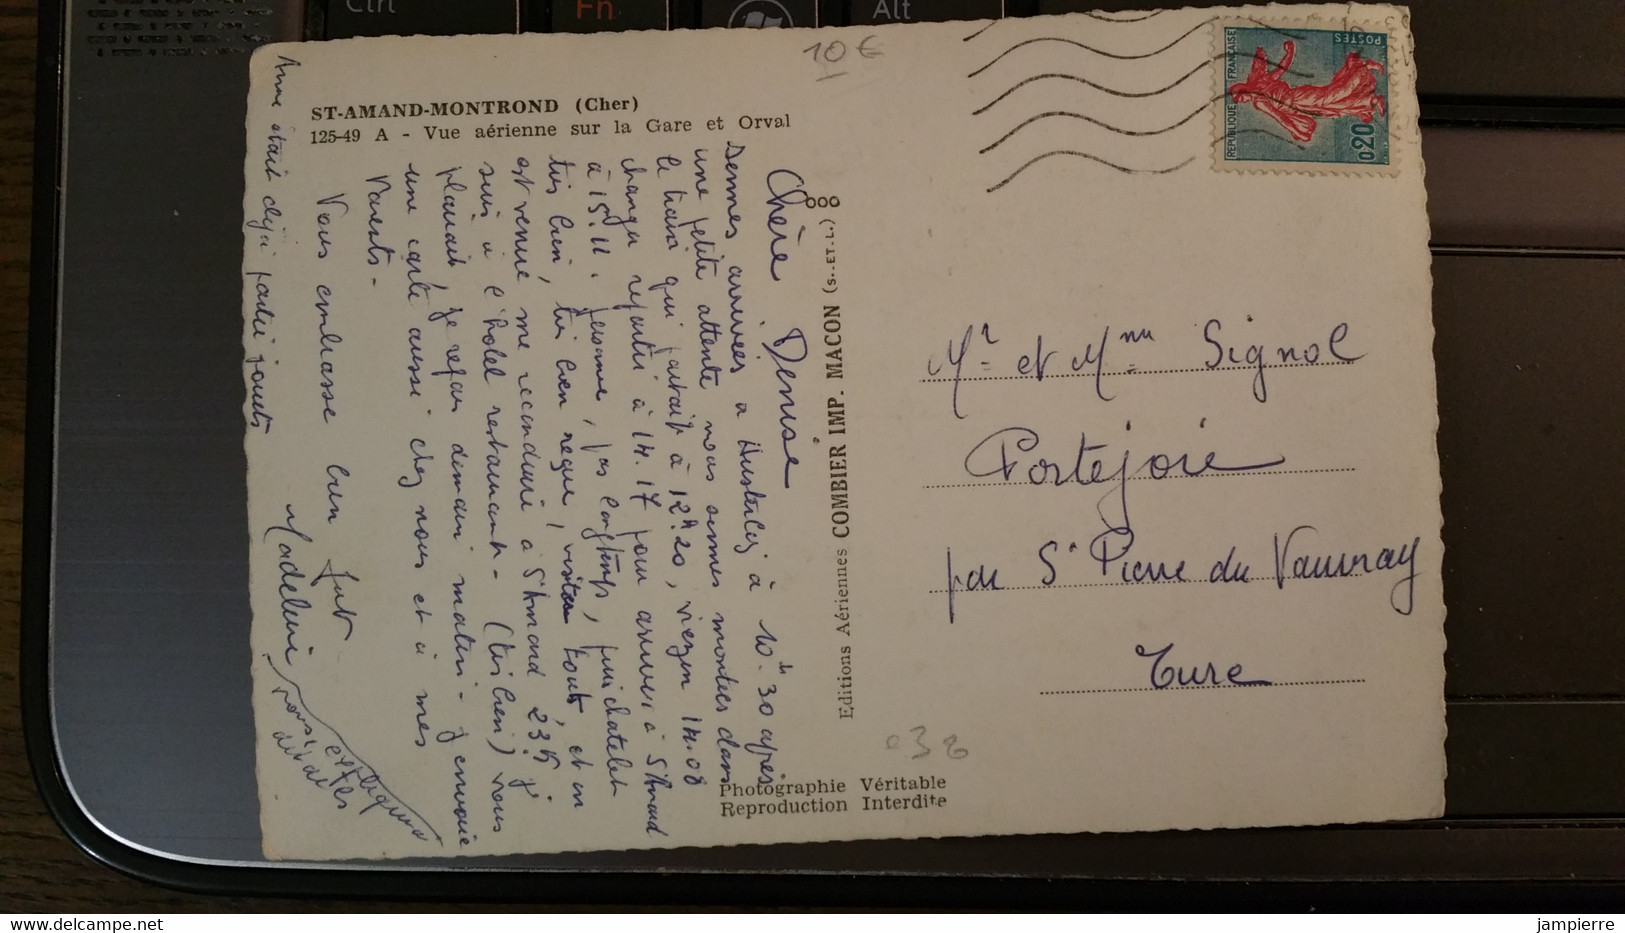 Ctrl
Fn
Alt
10 €
ST-AMAND-MONTROND (Cher)
125-49 A - Vue aérienne sur la Gare et Orval
Chère Denise
Sommes arrivées à Austerlitz à 10h30 après
une petite attente nous sommes montées dans
le train qui partait à 12h20, vierzon 14.08
changer repartir à 14.17 pour arriver à St Amand
à 15.11. personne, pas longtemps, puis chatelet
très bien, très bien reçue, visiter tout, et on
est venue me reconduire à St Amand 23h j'
suis à l'hotel restaurant - (très bien) vous
plairait, je repars demain matin - j'envoie
une carte aussi chez nous et à mes
Parents -
Vous embrasse bien fort
Madeleine
Anne était déjà partie
Editions Aériennes COMBIER IMP. MACON (S.-ET-L.)
Photographie Véritable
Reproduction Interdite
REPUBLIQUE FRANÇAISE
POSTES
0,20
Mr et Mme Signol
Portejoie
par St Pierre du Vauvray
Eure
jampierre